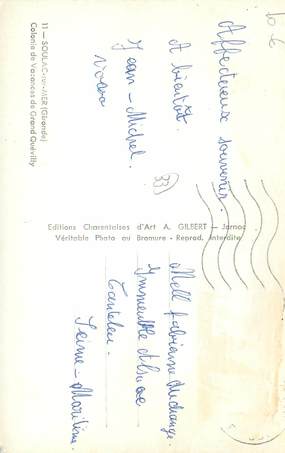 10 €
11 — SOULAC-sur-MER (Gironde)
Colonie de Vacances de Grand Quévilly
Affectueux souvenir.
A bientôt.
Jean-Michel.
(33)
Editions Charentaises d'Art A. GILBERT — Jarnac
Véritable Photo au Bromure - Reprod. Interdite
Melle Fabienne Duchange.
Immeuble Alsace
Canteleu.
Seine-Maritime.